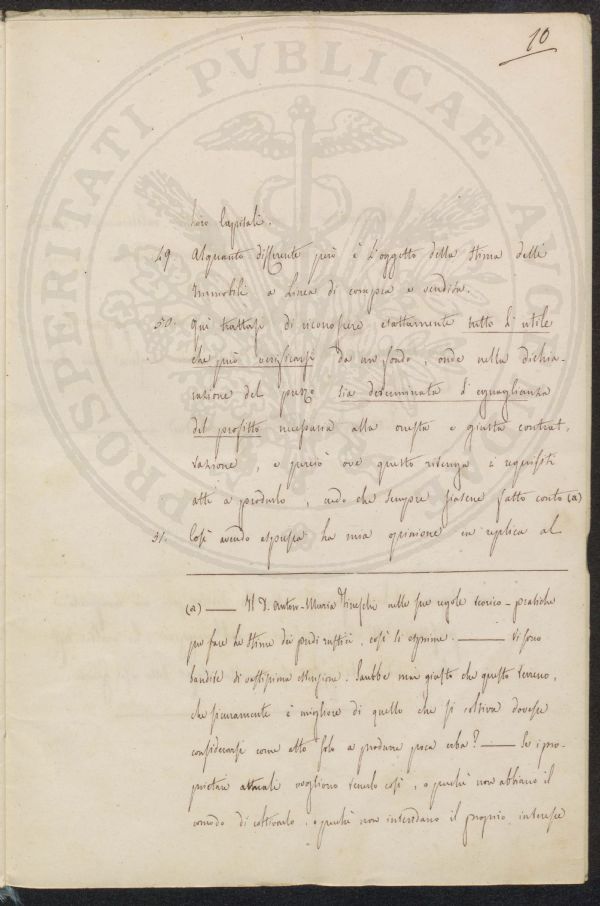 10
loro Capitali.
49. Alquanto differente però è l'oggetto della stima delli
Immobili a linea di compra e vendita.
50. Quì trattasi di riconoscere esattamente tutto l'utile
che può verificarsi da un fondo, onde nella dichia-
razione del prezzo sia determinata l'eguaglianza
del profitto necessaria alla onesta e giusta contrat-
tazione, e perciò ove questo ritenga i requisiti
atti a produrlo, credo che sempre siasene fatto conto (a)
51. Così avendo espressa la mia opinione in replica al
(a) — Il D. Anton-Maria nelle sue regole teorico-pratiche
per fare le stime dei predi rustici, così si esprime. — Vi sono
bandite di vastissima estensione. Sarebbe mai giusto che questo terreno,
che sicuramente è migliore di quello che si coltiva dovesse
considerarsi come atto solo a produrre poca erba? — Se i pro-
prietari attuali vogliono tenerlo così, o perchè non abbiano il
comodo di coltivarlo, o perchè non intendano il proprio interesse
PROSPERITATI PVBLICAE AVG